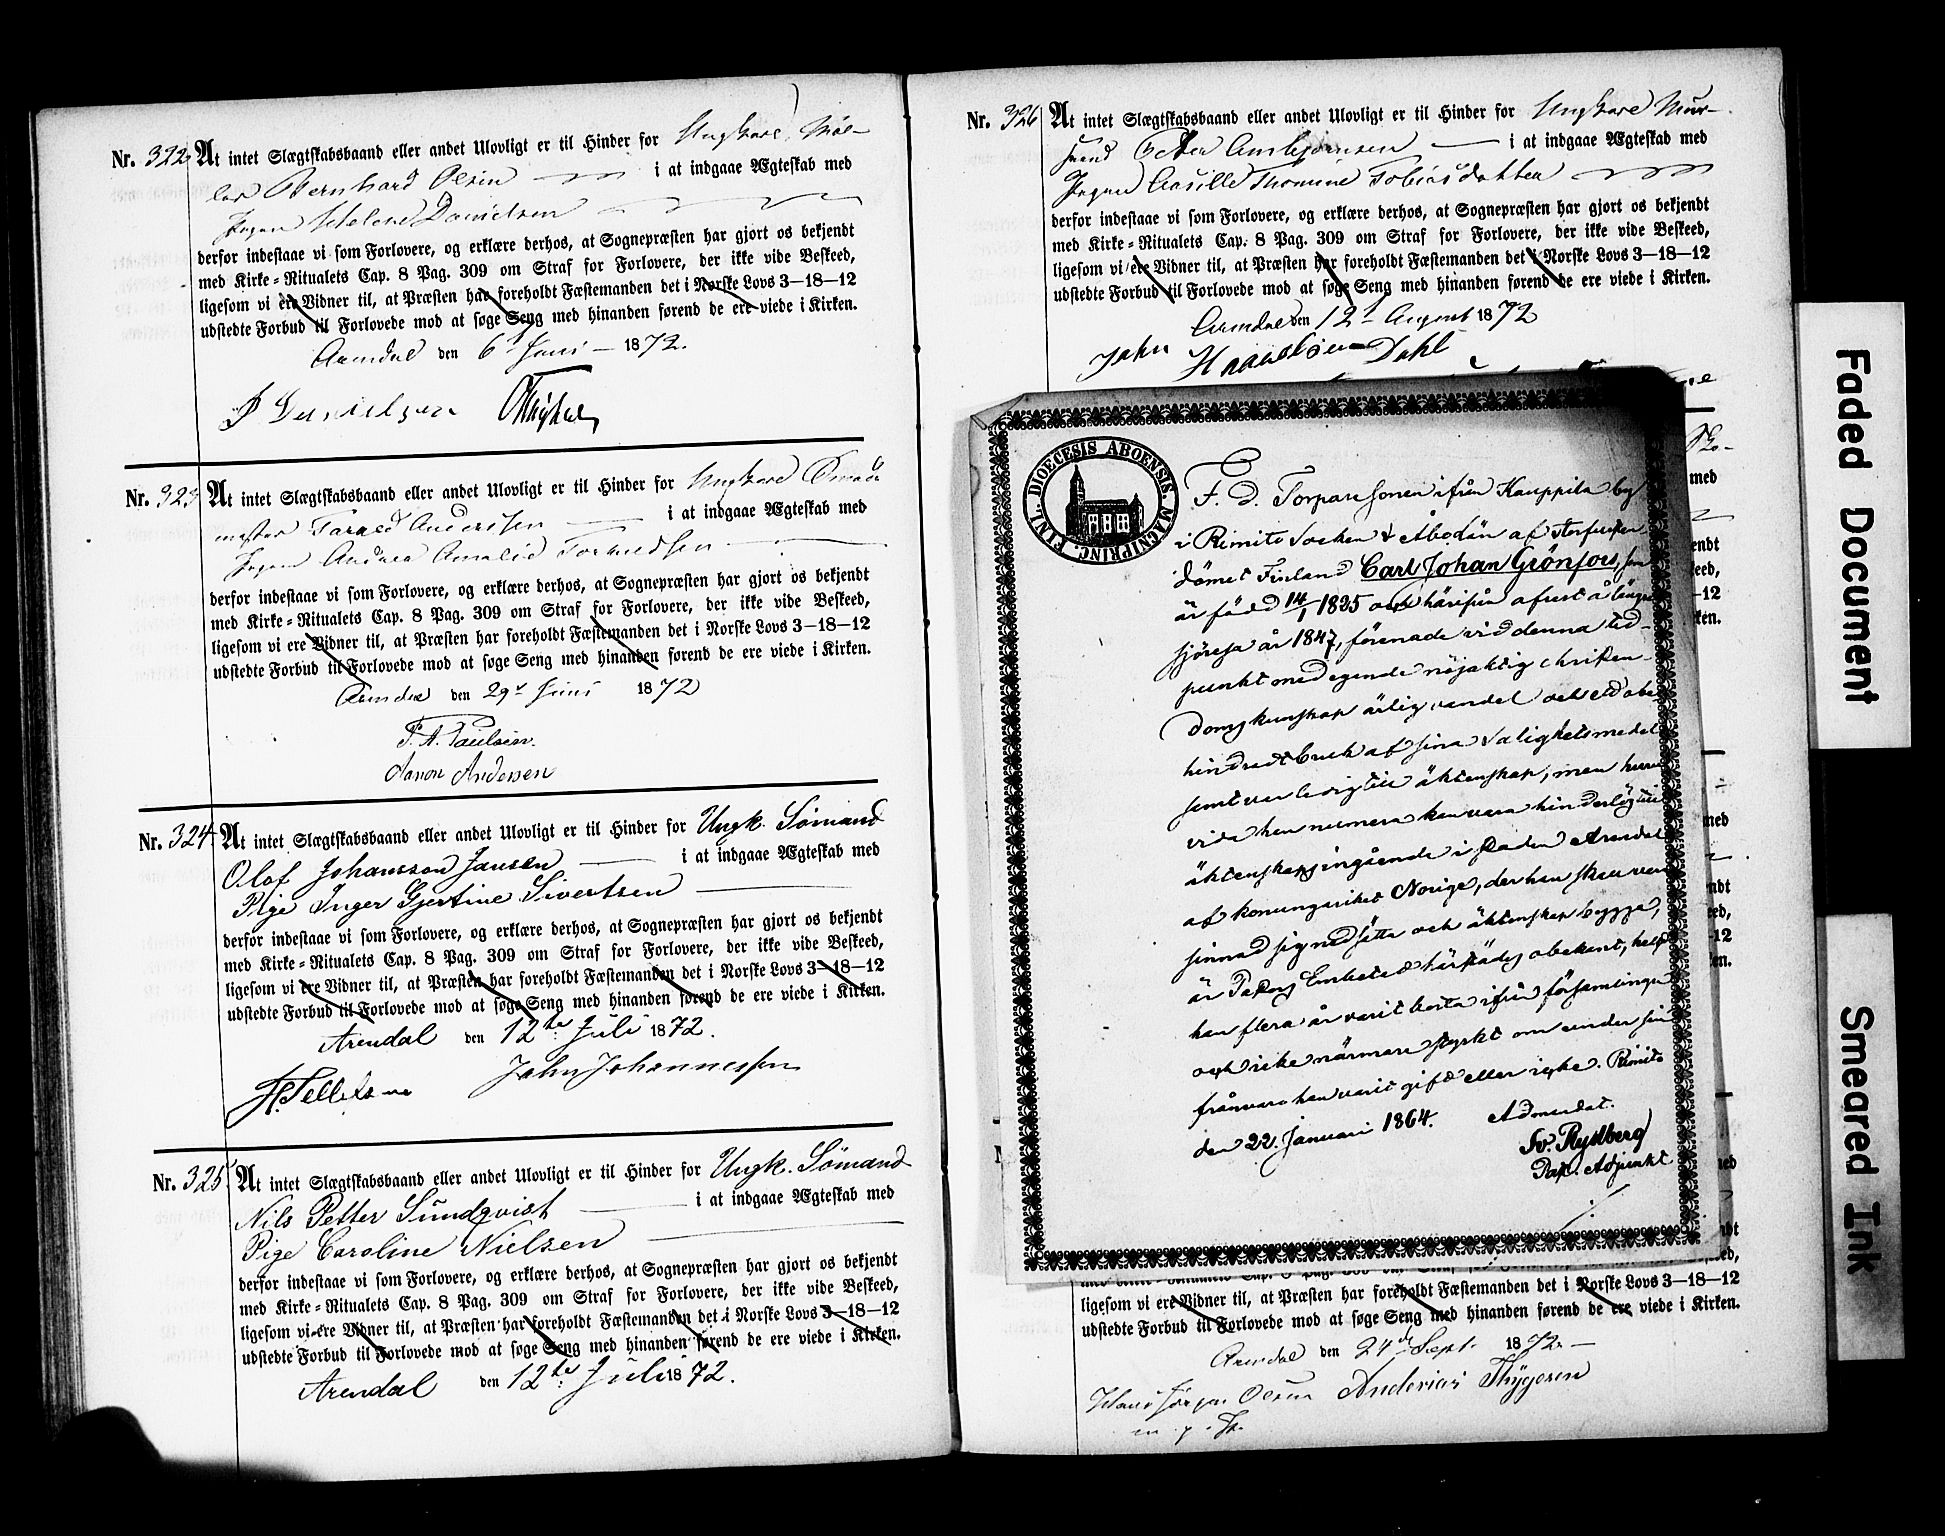 Nr. 322 At intet Slægtskabsbaand eller andet Ulovligt er til Hinder for Ungkarl Møl-
ler Bernhard Olsen i at indgaae Ægteskab med
Pigen Helene Danielsen
derfor indestaae vi som Forlovere, og erklære derhos, at Sognepræsten har gjort os bekjendt
med Kirke-Ritualets Cap. 8 Pag. 309 om Straf for Forlovere, der ikke vide Beskeed,
ligesom vi ere Vidner til, at Præsten har foreholdt Fæstemanden det i Norske Lovs 3-18-12
udstedte Forbud til Forlovede mod at søge Seng med hinanden førend de ere viede i Kirken.
Arendal den 6t Juni 1872.
P Danielsen
Nr. 323 At intet Slægtskabsbaand eller andet Ulovligt er til Hinder for Ungkarl
mester Tarald Anderssen i at indgaae Ægteskab med
Pigen Andrea Amalie
derfor indestaae vi som Forlovere, og erklære derhos, at Sognepræsten har gjort os bekjendt
med Kirke-Ritualets Cap. 8 Pag. 309 om Straf for Forlovere, der ikke vide Beskeed,
ligesom vi ere Vidner til, at Præsten har foreholdt Fæstemanden det i Norske Lovs 3-18-12
udstedte Forbud til Forlovede mod at søge Seng med hinanden førend de ere viede i Kirken.
Arendal den 29t Juni 1872
Paulsen.
Aanon Andersen
Nr. 324 At intet Slægtskabsbaand eller andet Ulovligt er til Hinder for Ungk. Sömand
Olof Johansson Jansen i at indgaae Ægteskab med
Pige Inger Gjertine Sivertsen
derfor indestaae vi som Forlovere, og erklære derhos, at Sognepræsten har gjort os bekjendt
med Kirke-Ritualets Cap. 8 Pag. 309 om Straf for Forlovere, der ikke vide Beskeed,
ligesom vi ere Vidner til, at Præsten har foreholdt Fæstemanden det i Norske Lovs 3-18-12
udstedte Forbud til Forlovede mod at søge Seng med hinanden førend de ere viede i Kirken.
Arendal den 12te Juli 1872.
John Johannessen
Nr. 325 At intet Slægtskabsbaand eller andet Ulovligt er til Hinder for Ungk. Sömand
Nils Petter Sundqvist i at indgaae Ægteskab med
Pige Caroline Nielsen
derfor indestaae vi som Forlovere, og erklære derhos, at Sognepræsten har gjort os bekjendt
med Kirke-Ritualets Cap. 8 Pag. 309 om Straf for Forlovere, der ikke vide Beskeed,
ligesom vi ere Vidner til, at Præsten har foreholdt Fæstemanden det i Norske Lovs 3-18-12
udstedte Forbud til Forlovede mod at søge Seng med hinanden førend de ere viede i Kirken.
Arendal den 12te Juli 1872.
Nr. 326 At intet Slægtskabsbaand eller andet Ulovligt er til Hinder for Ungkarl Mur-
svend Peter Ambjørnsen i at indgaae Ægteskab med
Pigen Thomine Tobiasdatter
derfor indestaae vi som Forlovere, og erklære derhos, at Sognepræsten har gjort os bekjendt
med Kirke-Ritualets Cap. 8 Pag. 309 om Straf for Forlovere, der ikke vide Beskeed,
ligesom vi ere Vidner til, at Præsten har foreholdt Fæstemanden det i Norske Lovs 3-18-12
udstedte Forbud til Forlovede mod at søge Seng med hinanden førend de ere viede i Kirken.
Arendal den 12t August 1872
John Dahl
FINL. DIOECESIS ABOENSIS. MAGNI PRINC.
F. d. Torparesonen ifrån Kauppila by
i Rimito Socken & Åbo län af Storfursten-
dömet Finland Carl Johan Grönfors, som
är född 14/1 1825 och härifrån afrest å längre
sjöresa år 1847, förenade vid denna tid-
punkt med egende nöjaktig christen-
domskunskap ärlig vandel och
hindradt bruk af sina Salighetsmedel
samt var ledig till äktenskap; men huru-
vida han numera kan vara hinderlös till
äktenskaps ingående i staden Arendal
af konungariket Norige, der han skall vara
sinnad sig nedsätta och äktenskap bygga,
är Pastors Embetet härstädes obekant, helst
han flera år varit borta ifrån församlingen
och icke närmare styrkt om under sin
frånvaro han varit gift eller icke. Rimito
den 22. Januari 1864. Admendat.
Sv. Rydberg
Past. Adjunkt
ligesom vi ere Vidner til, at Præsten har foreholdt Fæstemanden det i Norske Lovs 3-18-12
udstedte Forbud til Forlovede mod at søge Seng med hinanden førend de ere viede i Kirken.
Arendal den 24d Sept. 1872.
Hans Jörgen Olsen Anderias Thygesen
Faded Document
Smeared Ink